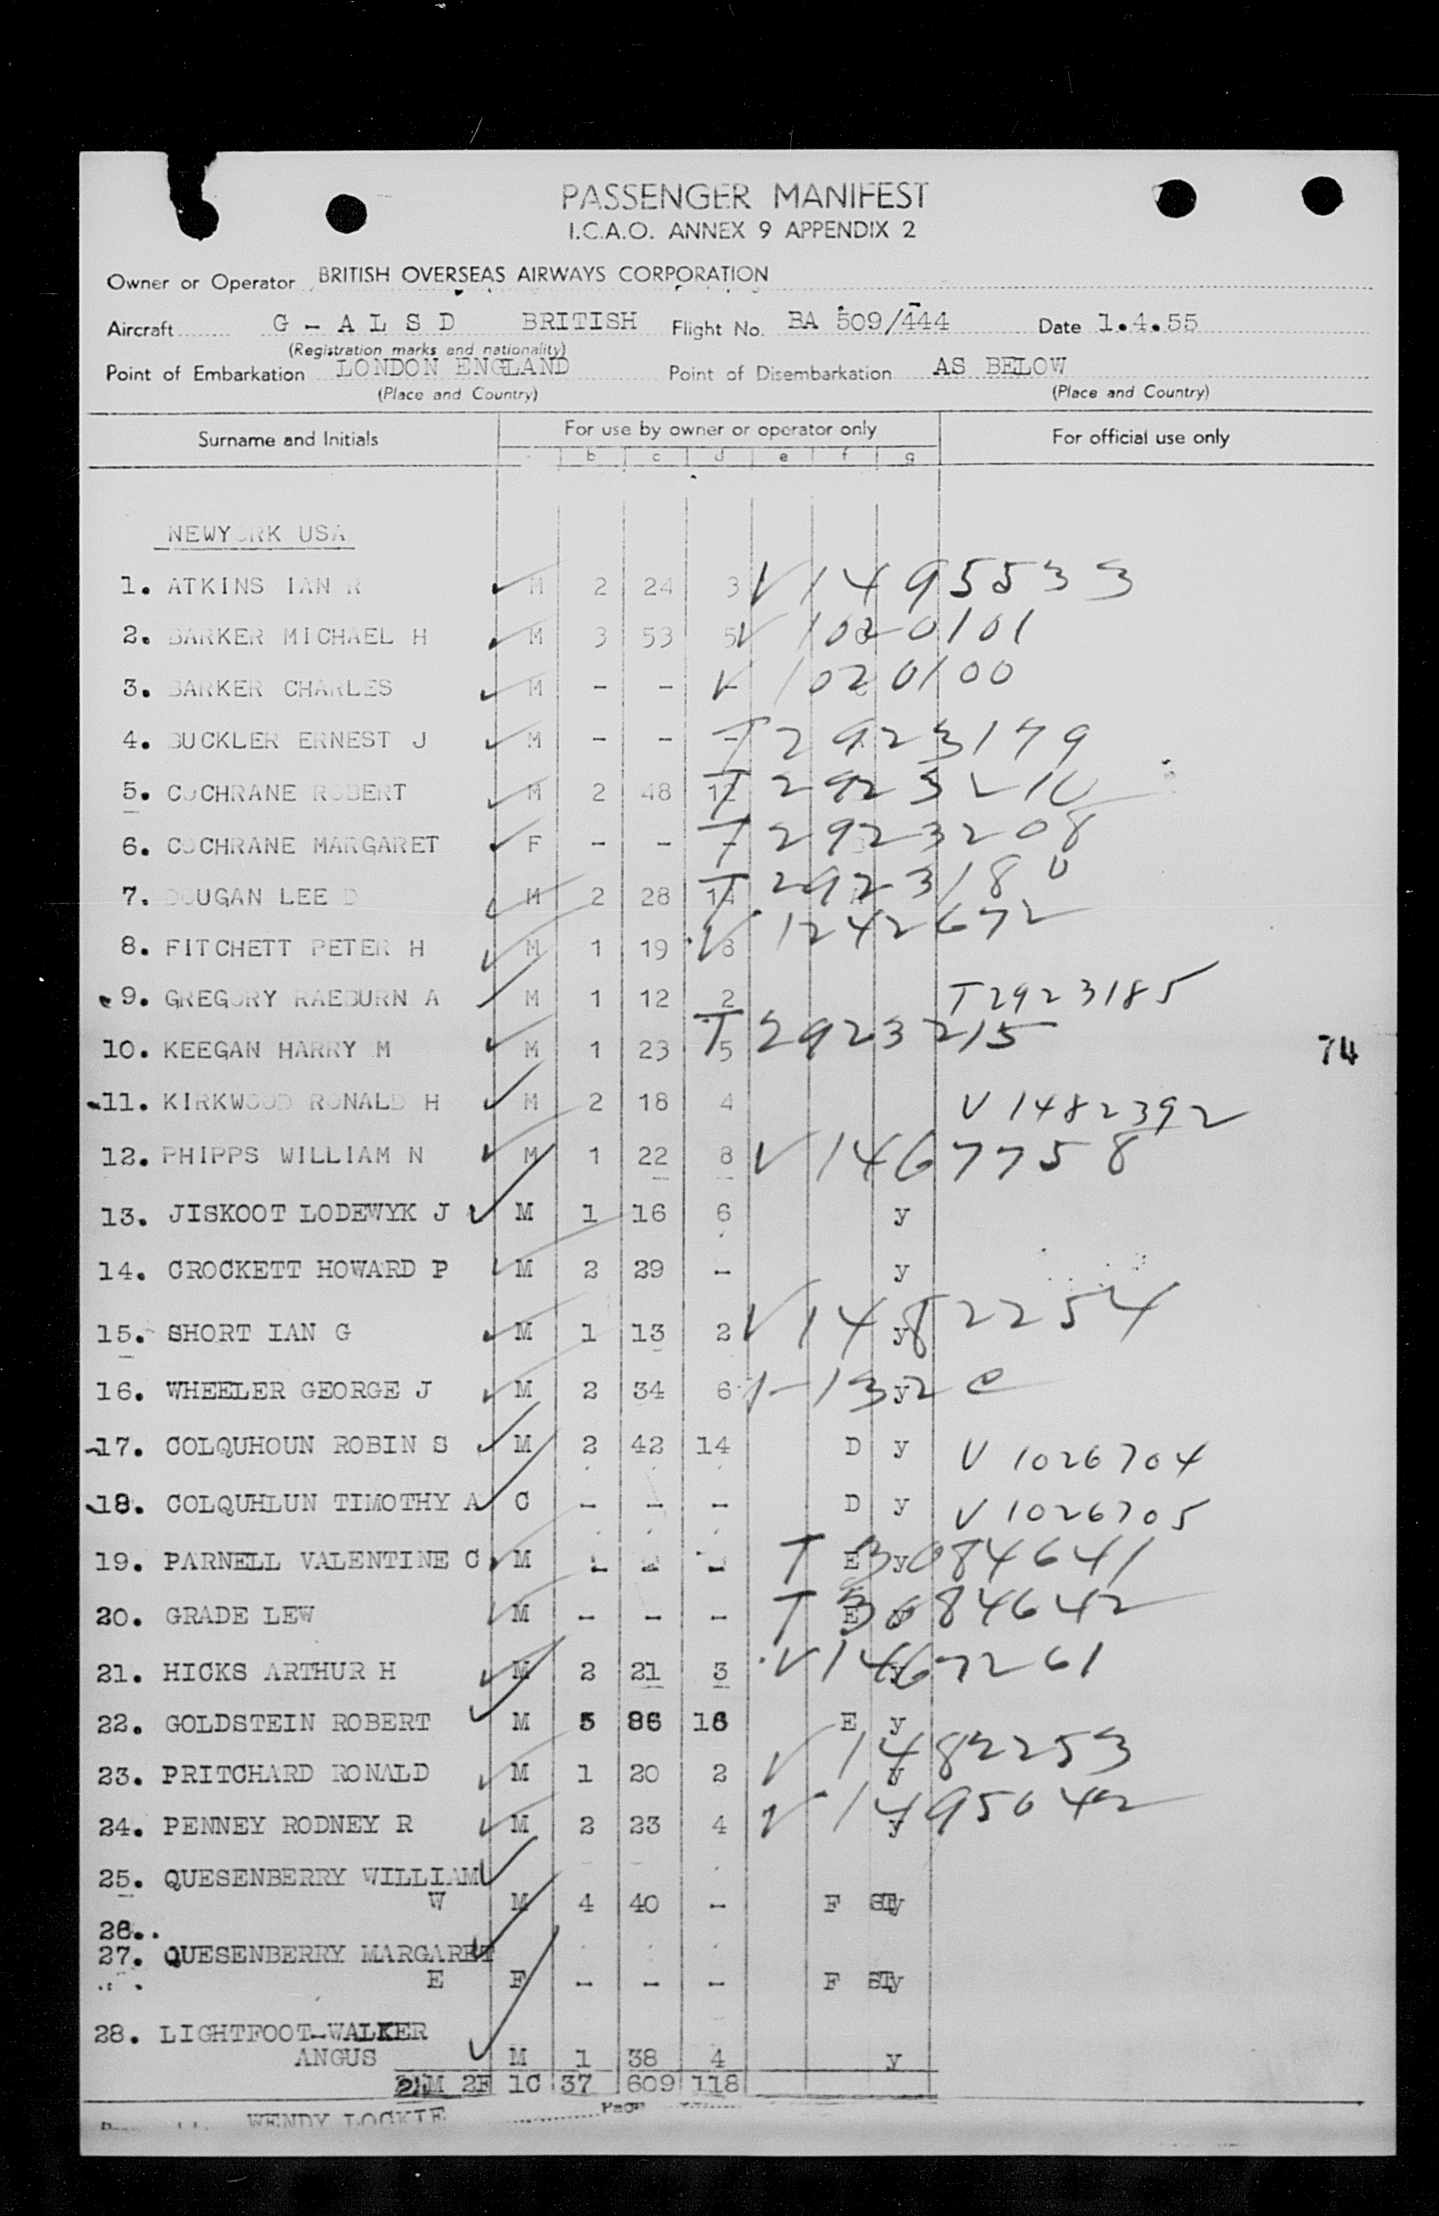 PASSENGER MANIFEST
I.C.A.O. ANNEX 9 APPENDIX 2
Owner or Operator BRITISH OVERSEAS AIRWAYS CORPORATION
Aircraft G - A L S D BRITISH Flight No. BA 509/444 Date 1.4.55
(Registration marks and nationality)
Point of Embarkation LONDON ENGLAND Point of Disembarkation AS BELOW
(Place and Country) (Place and Country)
Surname and Initials For use by owner or operator only For official use only
b c d e f g
NEWYORK USA
1. ATKINS IAN R M 2 24 3 V 1495533
2. BARKER MICHAEL H M 3 53 5 V 1020101
3. BARKER CHARLES M - - - V 1020100
4. BUCKLER ERNEST J M - - - T 2923179
5. COCHRANE ROBERT M 2 48 12 T 2923210
6. COCHRANE MARGARET F - - - T 2923208
7. DOUGAN LEE D M 2 28 14 T 2923180
8. FITCHETT PETER H M 1 19 8 V 1242672
9. GREGORY RAEBURN A M 1 12 2 T2923185
10. KEEGAN HARRY M M 1 23 5 T 2923215
74
11. KIRKWOOD RONALD H M 2 18 4 V 1482392
12. PHIPPS WILLIAM N M 1 22 8 V 1467758
13. JISKOOT LODEWYK J M 1 16 6 y
14. CROCKETT HOWARD P M 2 29 - y
15. SHORT IAN G M 1 13 2 y V 1482254
16. WHEELER GEORGE J M 2 34 6 y
17. COLQUHOUN ROBIN S M 2 42 14 D y V 1026704
18. COLQUHLUN TIMOTHY A C - - - D y V 1026705
19. PARNELL VALENTINE C M - - - E y T 3084641
20. GRADE LEW M - - - E y T 3084642
21. HICKS ARTHUR H M 2 21 3 y V 1467261
22. GOLDSTEIN ROBERT M 5 86 16 E y
23. PRITCHARD RONALD M 1 20 2 y V 1482253
24. PENNEY RODNEY R M 2 23 4 y V 1495042
25. QUESENBERRY WILLIAM
W M 4 40 - F STy
26..
27. QUESENBERRY MARGARET
E F - - - F STy
28. LIGHTFOOT-WALKER
ANGUS M 1 38 4 y
2F 1C 37 609 118
WENDY LOCKIE